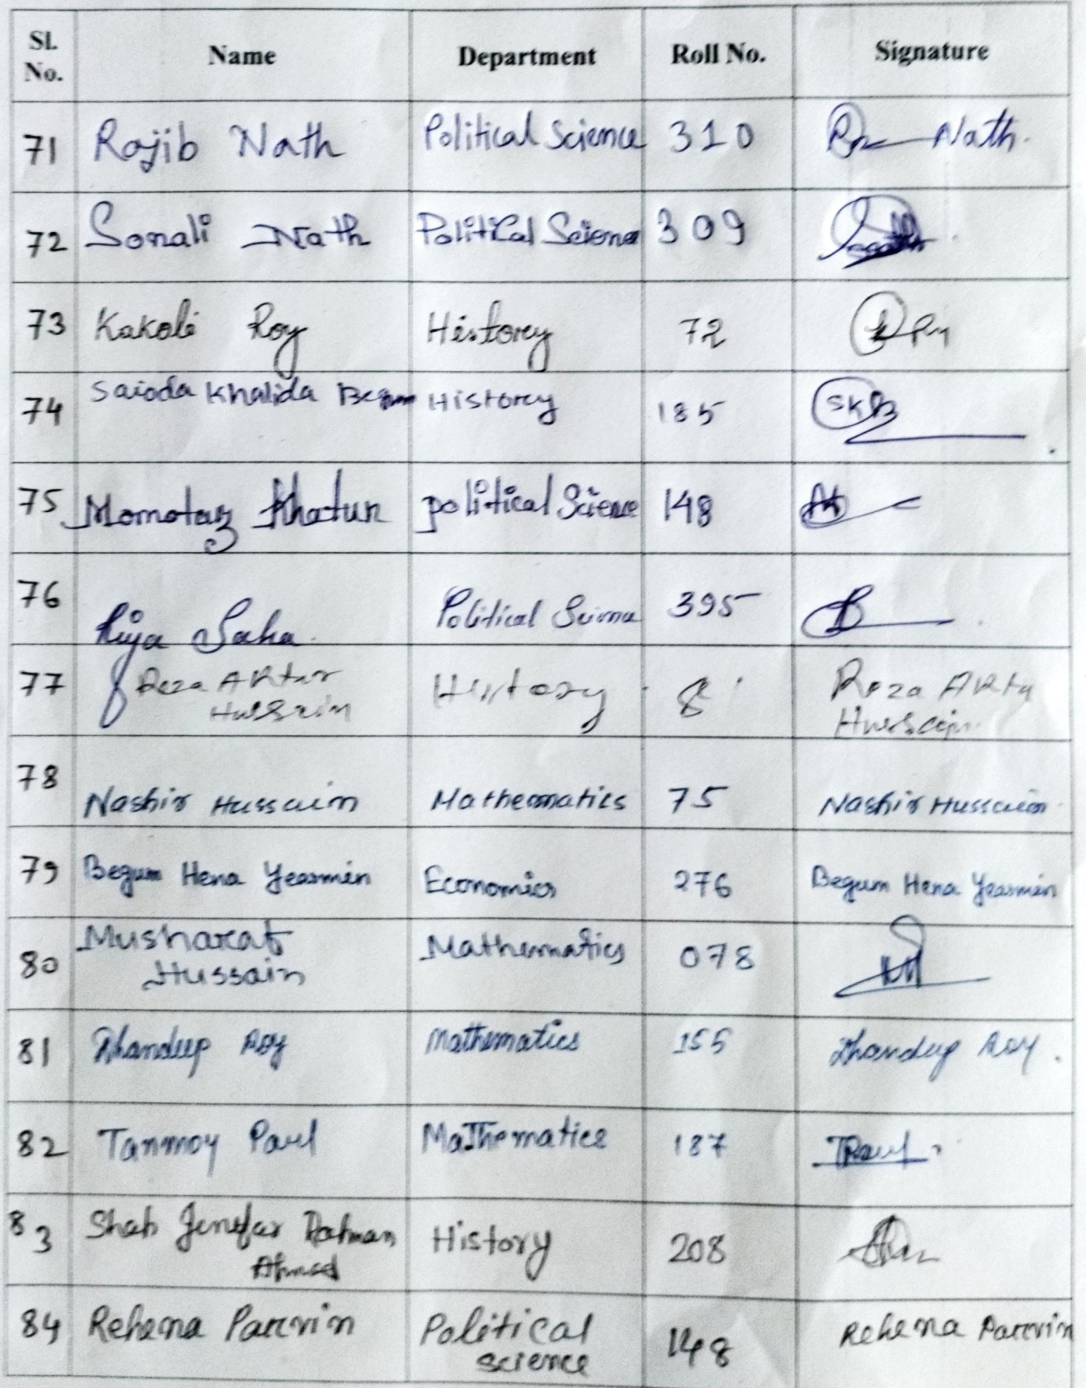 Sl. No. Name Department Roll No. Signature
71 Rajib Nath Political Science 310 Nath.
72 Sonali Nath Political Science 309
73 Kakoli Roy History 72 Roy
74 Saioda Khalida Begum History 185 SKB
75 Momotaz Khatun political Science 148
76 Riya Saha Political Science 395
77 Reza AKtar Hussain History 8 Reza AKta Hussain
78 Nashir Hussain Mathematics 75 Nashir Hussain
79 Begum Hena Yeasmin Economics 276 Begum Hena Yeasmin
80 Musharaf Hussain Mathematics 078
81 Dhandeep Roy Mathematics 155 Dhandeep Roy.
82 Tanmoy Paul Mathematics 187 TPaul
83 Shah Jenifar Rahman Ahmed History 208
84 Rehena Parvin Political science 148 Rehena Parvin